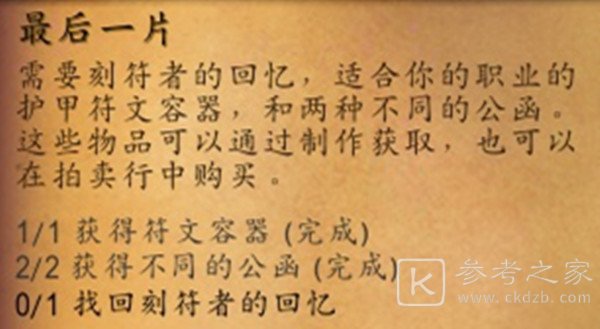 最后一片
需要刻符者的回忆，适合你的职业的
护甲符文容器，和两种不同的公函。
这些物品可以通过制作获取，也可以
在拍卖行中购买。
1/1 获得符文容器 (完成)
2/2 获得不同的公函 (完成)
0/1 找回刻符者的回忆
K 参考之家
www.ckdzb.com